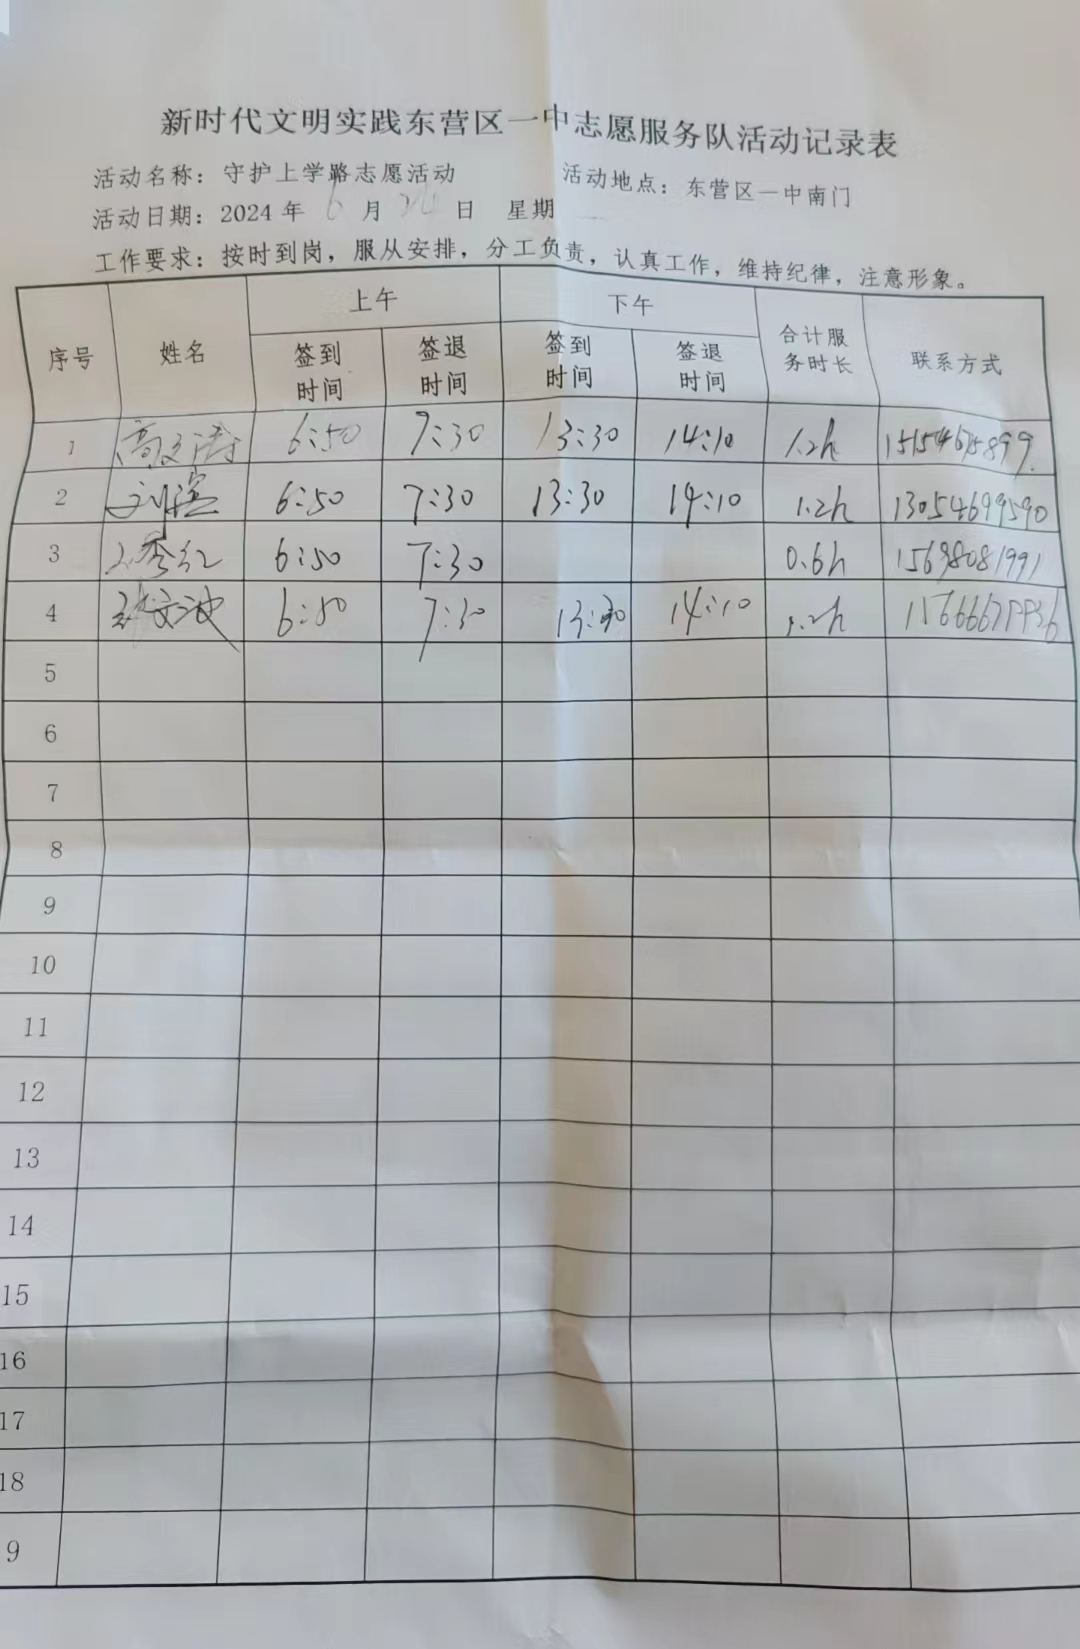 新时代文明实践东营区一中志愿服务队活动记录表
活动名称：守护上学路志愿活动 活动地点：东营区一中南门
活动日期：2024年 6 月 日 星期
工作要求：按时到岗，服从安排，分工负责，认真工作，维持纪律，注意形象。
序号 姓名 上午 下午 合计服务时长 联系方式
签到时间 签退时间 签到时间 签退时间
1 高文涛 6:50 7:30 13:30 14:10 1.2h 15154675899
2 刘滨 6:50 7:30 13:30 14:10 1.2h 13054699590
3 秀红 6:50 7:30 0.6h 15698081991
4 6:50 7:30 13:30 14:10 1.2h
5
6
7
8
9
10
11
12
13
14
15
16
17
18
9